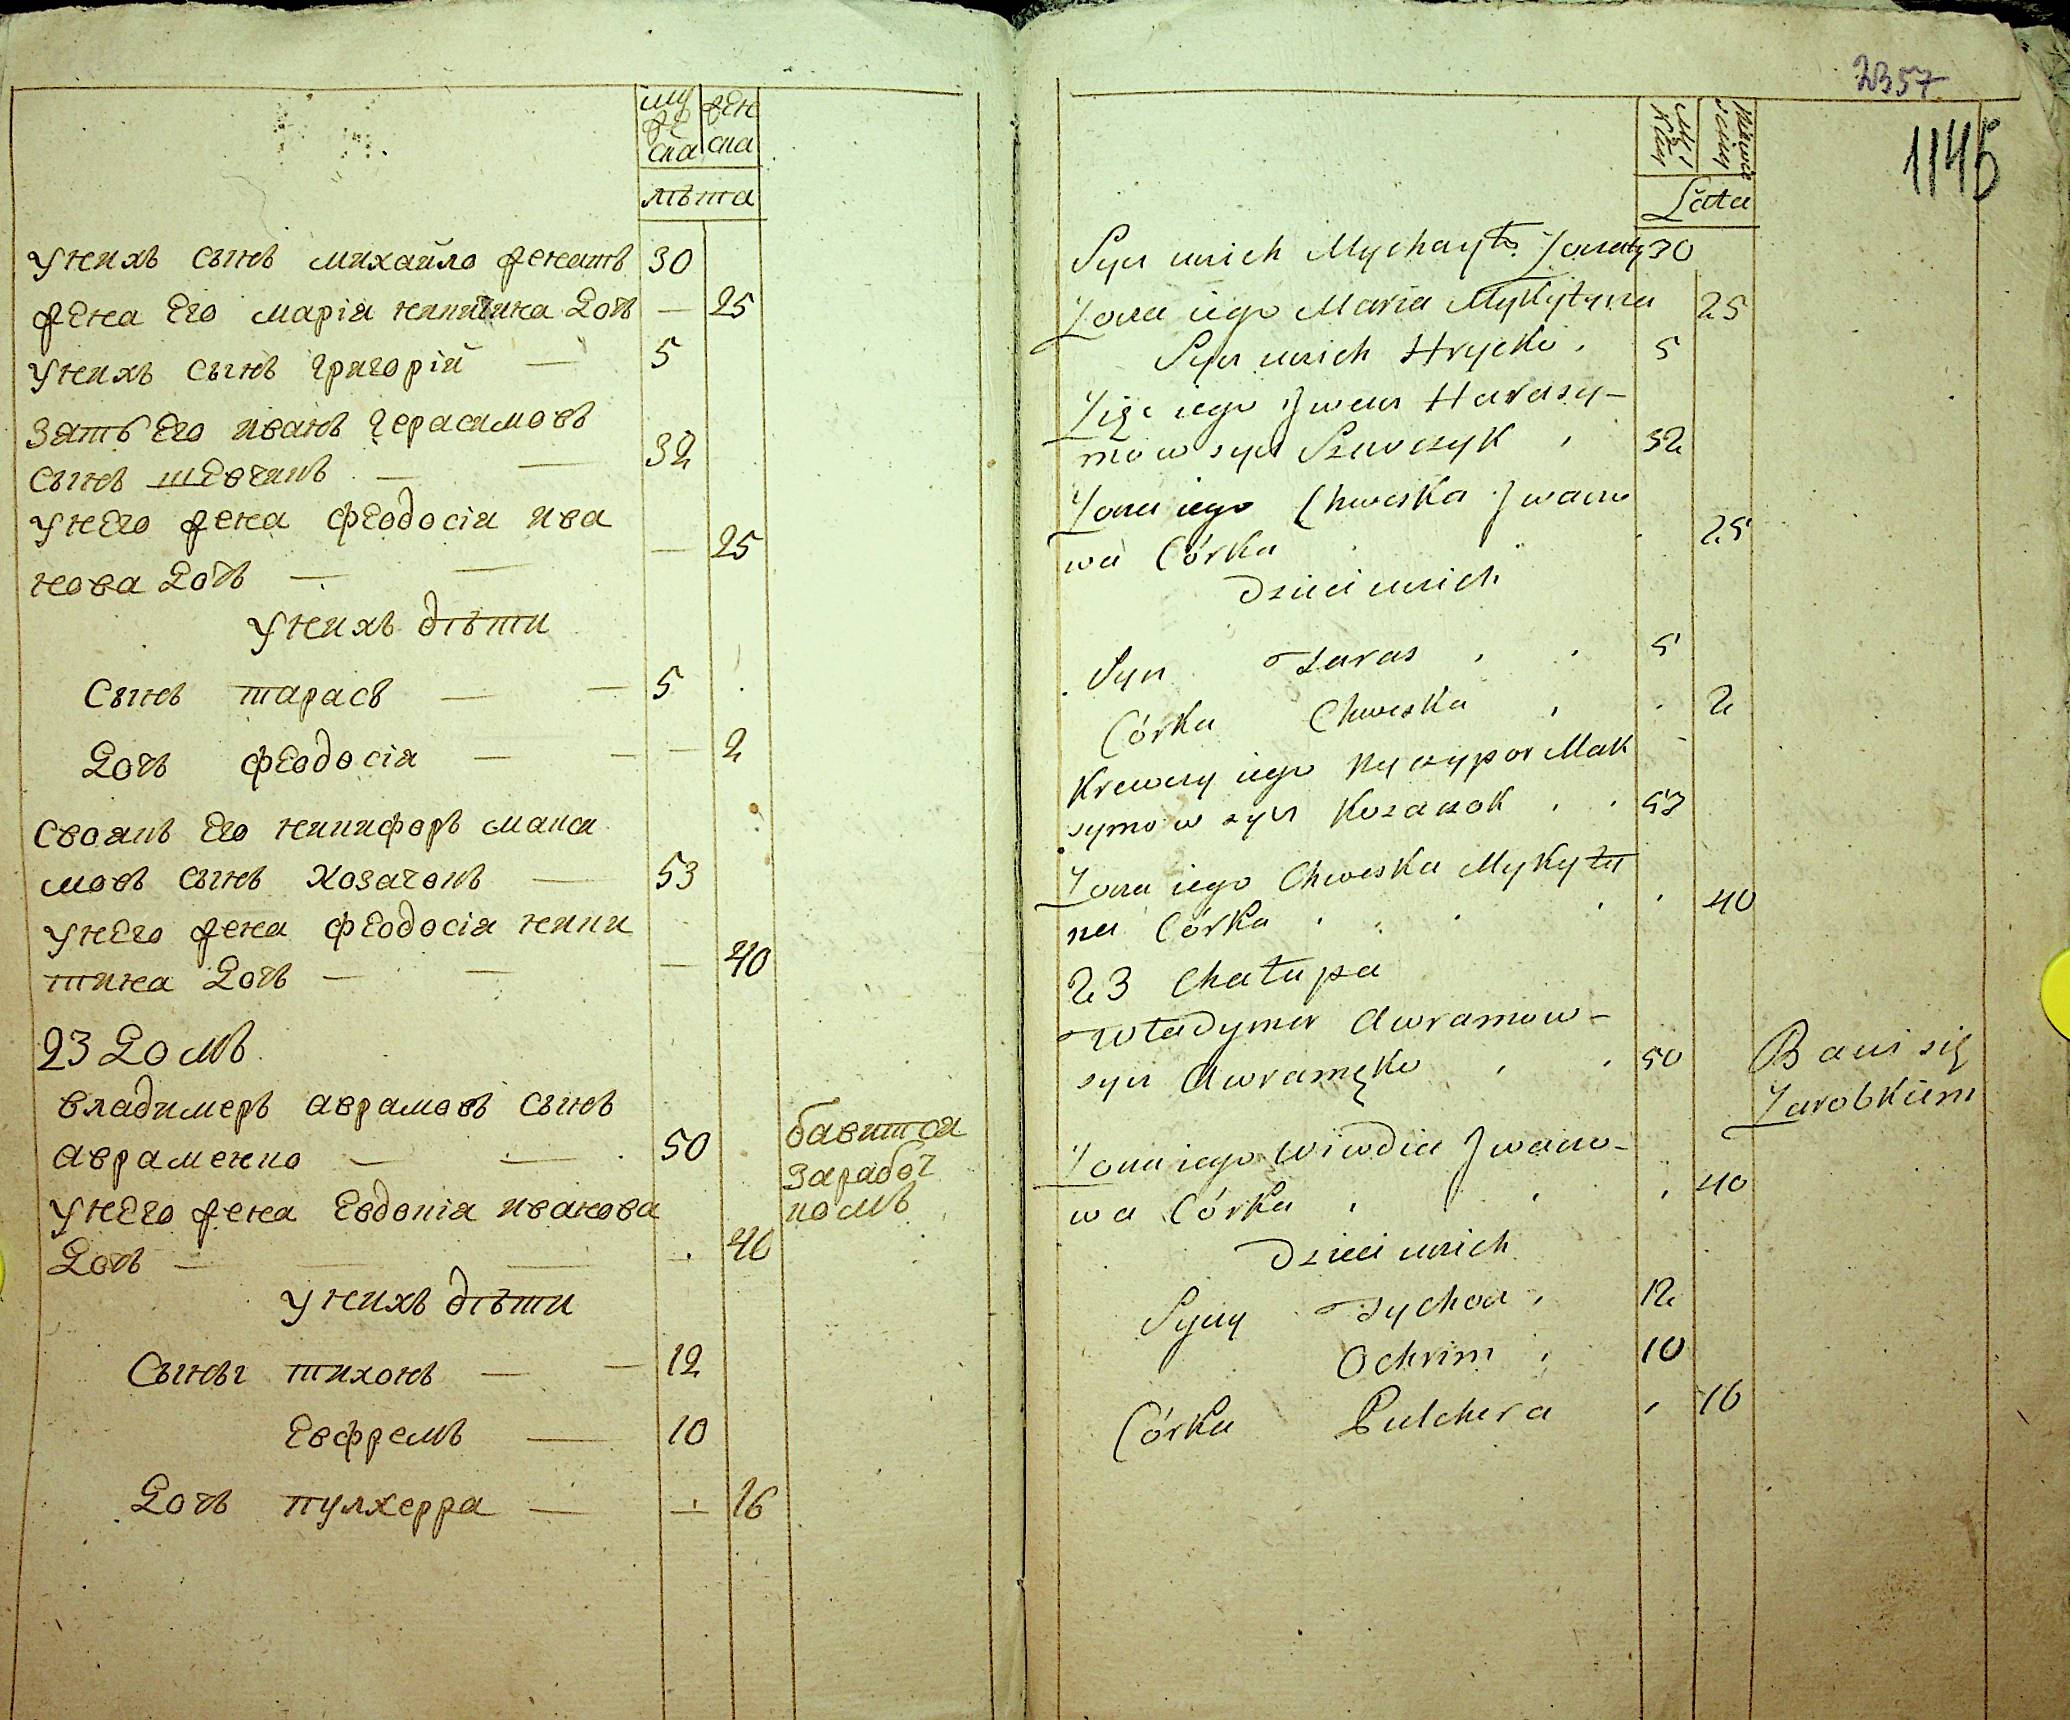 муже
ска
жен
ска
лѣта
у нихъ сынъ михайло женатъ 30
жена Его марія никитина дочь — 25
у нихъ сынъ григорій — 5
Зять Его иванъ герасимовъ
сынъ шевчикъ — — 32
у нЕго жена феодосія ива
нова дочь — — — 25
у нихъ дѣти
Сынъ тарасъ — — 5
дочь феодосія — — — 2
своякъ Его никифоръ макси
мовъ сынъ козачокъ — 53
у нЕго жена феодосія ники
тина дочь — — — 40
23 домъ
владимеръ аврамовъ сынъ
авраменко — — 50
бавится
заработ
комъ
у нЕго жена Евдокія иванова
дочь — — — 40
у нихъ дѣти
Сыны тихонъ — — 12
Евфремъ — 10
дочь пулхерра — — 16
2357
1145
Lata
Syn unich Mychayło Żonaty 30
Żona iego Maria Mykytyna 25
Syn unich Hryćko 5
Zięć iego Jwan Harasy-
mow syn Szewczyk 32
Żona iego Chweska Jwano
wa Córka 25
Dzieci unich
Syn Taras 5
Córka Chweska 2
Krewny iego Nyczypor Mak
symow syn Kozaczok 53
Żona iego Chweska Mykyty
na Córka 40
23 Chałupa
Władymer Awramow-
syn Awramęko 50
Bawi się
Zarobkiem
Żona iego Wiwdia Jwano-
wa Córka 40
Dzieci unich
Syny Tychon 12
Ochrim 10
Córka Pulchera 16